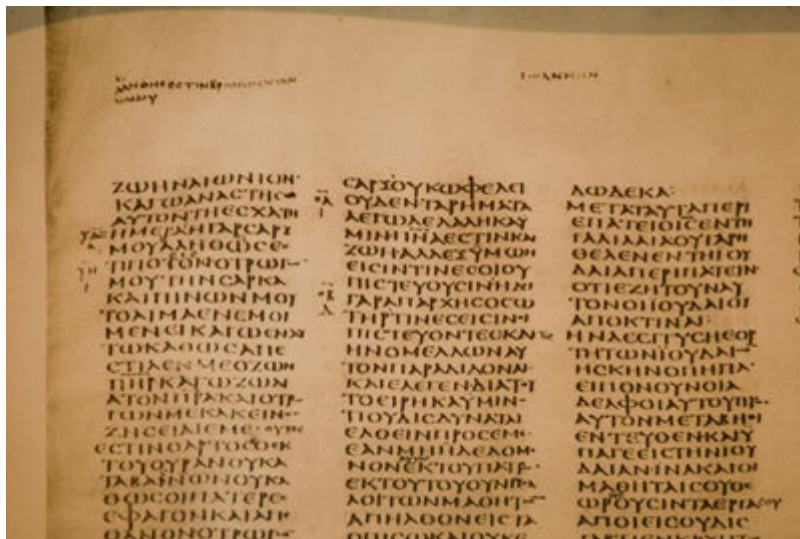 ΙΩΑΝΝΗΝ
ΖΩΗΝΑΙΩΝΙΟΝ
ΚΑΓΩΑΝΑϹΤΗϹΩ
ΑΥΤΟΝΤΗΕϹΧΑΤΗ
ΗΜΕΡΑΗΓΑΡϹΑΡΞ
ΜΟΥΑΛΗΘΩϹΕ
ΠΟΤΟΝΟΤΡΩΓΩ
ΜΟΥΤΗΝϹΑΡΚΑ
ΚΑΙΠΙΝΩΝΜΟΥ
ΤΟΑΙΜΑΕΝΕΜΟΙ
ΜΕΝΕΙΚΑΓΩΕΝΑΥ
ΤΩΚΑΘΩϹΑΠΕ
ϹΤΙΛΕΝΜΕΟΖΩΝ
ΠΗΡΚΑΓΩΖΩΝ
ΔΙΑΤΟΝΠΡΑΚΑΙΟΤΡΩ
ΓΩΝΜΕΚΑΚΕΙΝΟϹ
ΖΗϹΕΙΔΙΕΜΕ·ΟΥΤΟϹ
ΕϹΤΙΝΟΑΡΤΟϹΟΕΚ
ΤΟΥΟΥΡΑΝΟΥΚΑ
ΤΑΒΑΙΝΩΝΟΥΚΑ
ΘΩϹΟΙΠΑΤΕΡΕϹ
ΕΦΑΓΟΝΚΑΙΑΠΕ
ΘΑΝΟΝΟΤΡΩΓΩ
ϹΑΡΞΟΥΚΩΦΕΛΕΙ
ΟΥΔΕΝΤΑΡΗΜΑΤΑ
ΑΕΓΩΛΕΛΑΛΗΚΑΥ
ΜΙΝΠΝΑΕϹΤΙΝΚΑΙ
ΖΩΗΑΛΛΕΞΥΜΩΝ
ΕΙϹΙΝΤΙΝΕϹΟΙΟΥ
ΠΙϹΤΕΥΟΥϹΙΝΗΔΙ
ΓΑΡΑΠΑΡΧΗϹΟϹΩ
ΤΗΡΤΙΝΕϹΕΙϹΙΝΟΙ
ΠΙϹΤΕΥΟΝΤΕϹΚΑΙΤΙϹ
ΗΝΟΜΕΛΛΩΝΑΥ
ΤΟΝΠΑΡΑΔΙΔΟΝΑΙ
ΚΑΙΕΛΕΓΕΝΔΙΑΤΟΥ
ΤΟΕΙΡΗΚΑΥΜΙΝΟ
ΤΙΟΥΔΙϹΔΥΝΑΤΑΙ
ΕΛΘΕΙΝΠΡΟϹΕΜΕ
ΕΑΝΜΗΗΔΕΔΟΜΕ
ΝΟΝΕΚΤΟΥΠΑΤΡΟϹ
ΕΚΤΟΥΤΟΥΟΥΝΠΟΛ
ΛΟΙΤΩΝΜΑΘΗΤΩ
ΑΠΗΛΘΟΝΕΙϹΤΑ
ΟΠΙϹΩΚΑΙΟΥΚΕ
ΔΩΔΕΚΑ·
ΜΕΤΑΤΑΥΤΑΠΕΡΙ
ΕΠΑΤΕΙΟΙϹΕΝΤΗ
ΓΑΛΙΛΑΙΑΟΥΓΑΡΗ
ΘΕΛΕΝΕΝΤΗΙΟΥ
ΔΑΙΑΠΕΡΙΠΑΤΕΙΝ
ΟΤΙΕΖΗΤΟΥΝΑΥ
ΤΟΝΟΙΙΟΥΔΑΙΟΙ
ΑΠΟΚΤΙΝΑΙ·
ΗΝΔΕΕΓΓΥϹΗΕΟΡ
ΤΗΤΩΝΙΟΥΔΑΙΩ
ΗϹΚΗΝΟΠΗΓΙΑ·
ΕΙΠΟΝΟΥΝΟΙΑ
ΔΕΛΦΟΙΑΥΤΟΥΠΡΟϹ
ΑΥΤΟΝΜΕΤΑΒΗΘΙ
ΕΝΤΕΥΘΕΝΚΑΙΥ
ΠΑΓΕΕΙϹΤΗΝΙΟΥ
ΔΑΙΑΝΙΝΑΚΑΙΟΙ
ΜΑΘΗΤΑΙϹΟΥΘΕ
ΩΡΟΥϹΙΝΤΑΕΡΓΑϹΟΥ
ΑΠΟΙΕΙϹΟΥΔΙϹ